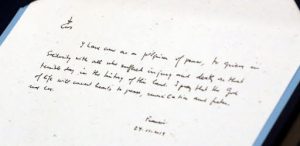 I have come as a pilgrim of peace, to grieve in
solidarity with all who suffered injury and death on that
terrible day in the history of this land. I pray that the God
of life will convert hearts to peace, reconciliation and frater-
nal love.
24.11.2019